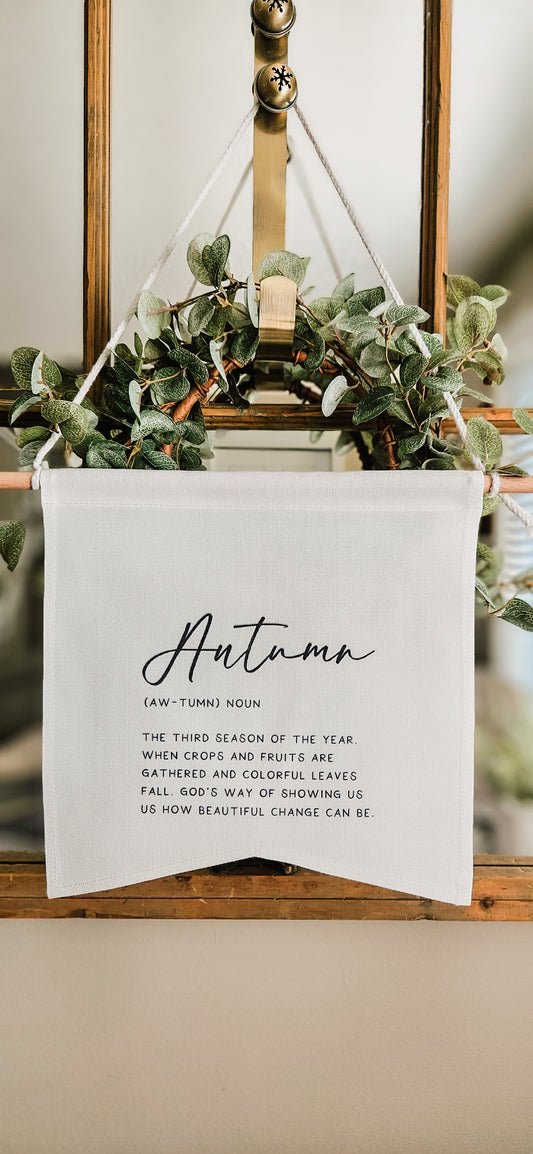 Autumn
(AW-TUMN) NOUN
THE THIRD SEASON OF THE YEAR.
WHEN CROPS AND FRUITS ARE
GATHERED AND COLORFUL LEAVES
FALL. GOD'S WAY OF SHOWING US
US HOW BEAUTIFUL CHANGE CAN BE.